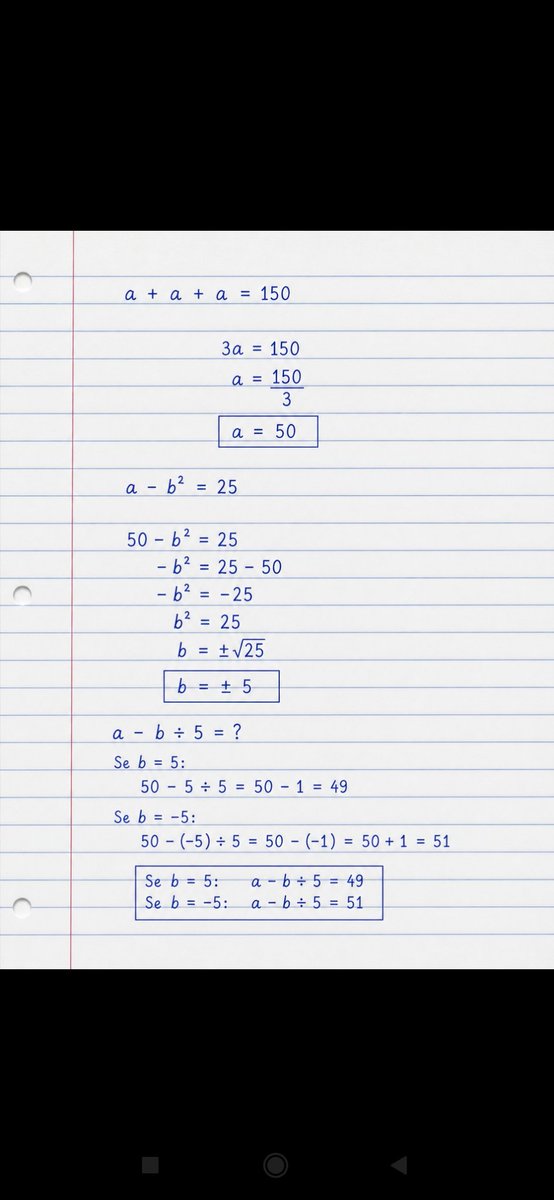 a + a + a = 150
3a = 150
a = 150/3
a = 50
a - b² = 25
50 - b² = 25
- b² = 25 - 50
- b² = -25
b² = 25
b = ±√25
b = ± 5
a - b ÷ 5 = ?
Se b = 5:
50 - 5 ÷ 5 = 50 - 1 = 49
Se b = -5:
50 - (-5) ÷ 5 = 50 - (-1) = 50 + 1 = 51
Se b = 5: a - b ÷ 5 = 49
Se b = -5: a - b ÷ 5 = 51